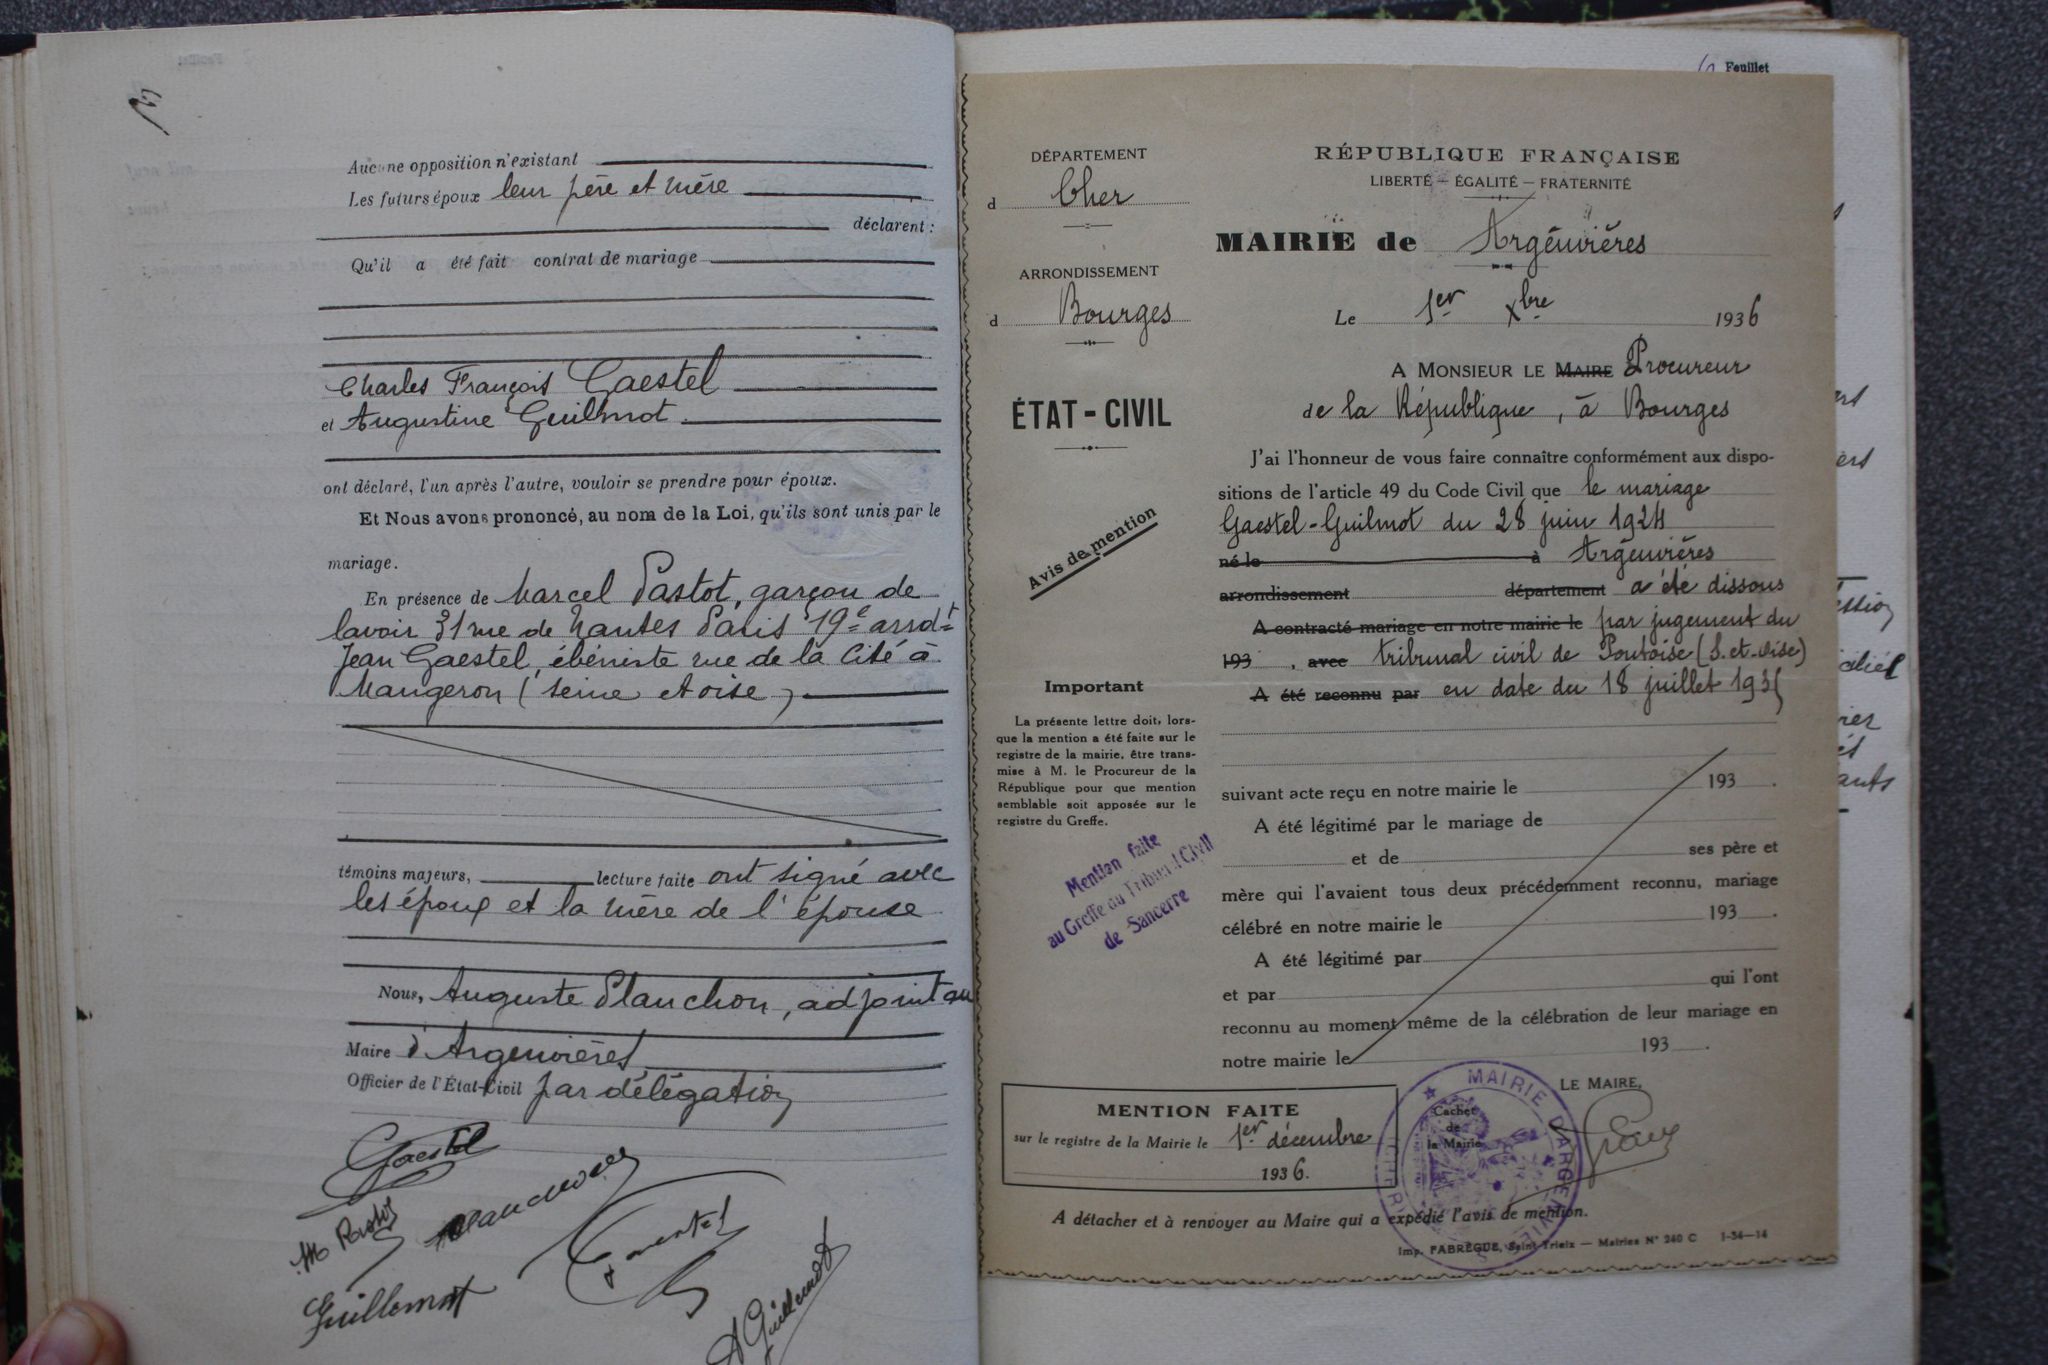 Aucune opposition n'existant
Les futurs époux leur père et mère
déclarent :
Qu'il a été fait contrat de mariage
Charles François Gaestel
et Augustine Guilmot
ont déclaré, l'un après l'autre, vouloir se prendre pour époux.
Et Nous avons prononcé, au nom de la Loi, qu'ils sont unis par le
mariage.
En présence de Marcel Pastot, garçon de
lavoir 31 rue de Nantes Paris 19e arrdt
Jean Gaestel, ébéniste rue de la Cité à
Maugeron (seine et oise)
témoins majeurs, lecture faite ont signé avec
les époux et la mère de l'épouse
Nous, Auguste Planchon, adjoint au
Maire d'Argenvières
Officier de l'État-Civil par délégation
Gaestel
Guillemot
A Guillemot
Feuillet
DÉPARTEMENT
d Cher
ARRONDISSEMENT
d Bourges
ÉTAT-CIVIL
Avis de mention
Important
La présente lettre doit, lors-
que la mention a été faite sur le
registre de la mairie, être trans-
mise à M. le Procureur de la
République pour que mention
semblable soit apposée sur le
registre du Greffe.
Mention faite
au Greffe du Tribunal Civil
de Sancerre
RÉPUBLIQUE FRANÇAISE
LIBERTÉ – ÉGALITÉ – FRATERNITÉ
MAIRIE de Argenvières
Le 1er Xbre 1936
A MONSIEUR LE MAIRE Procureur
de la République, à Bourges
J'ai l'honneur de vous faire connaître conformément aux dispo-
sitions de l'article 49 du Code Civil que le mariage
Gaestel-Guilmot du 28 juin 1924
né le à Argenvières
arrondissement département a été dissous
A contracté mariage en notre mairie le par jugement du
193 , avec tribunal civil de Pontoise (S.et-Oise)
A été reconnu par en date du 18 juillet 1935
suivant acte reçu en notre mairie le 193 .
A été légitimé par le mariage de
et de ses père et
mère qui l'avaient tous deux précédemment reconnu, mariage
célébré en notre mairie le 193 .
A été légitimé par
et par qui l'ont
reconnu au moment même de la célébration de leur mariage en
notre mairie le 193 .
LE MAIRE,
Cachet
de
la Mairie
MAIRIE D'ARGENVIÈRES
MENTION FAITE
sur le registre de la Mairie le 1er décembre
1936.
A détacher et à renvoyer au Maire qui a expédié l'avis de mention.
Imp. FABRÈGUE, Saint-Yrieix — Mairies N° 240 C 1-34-14